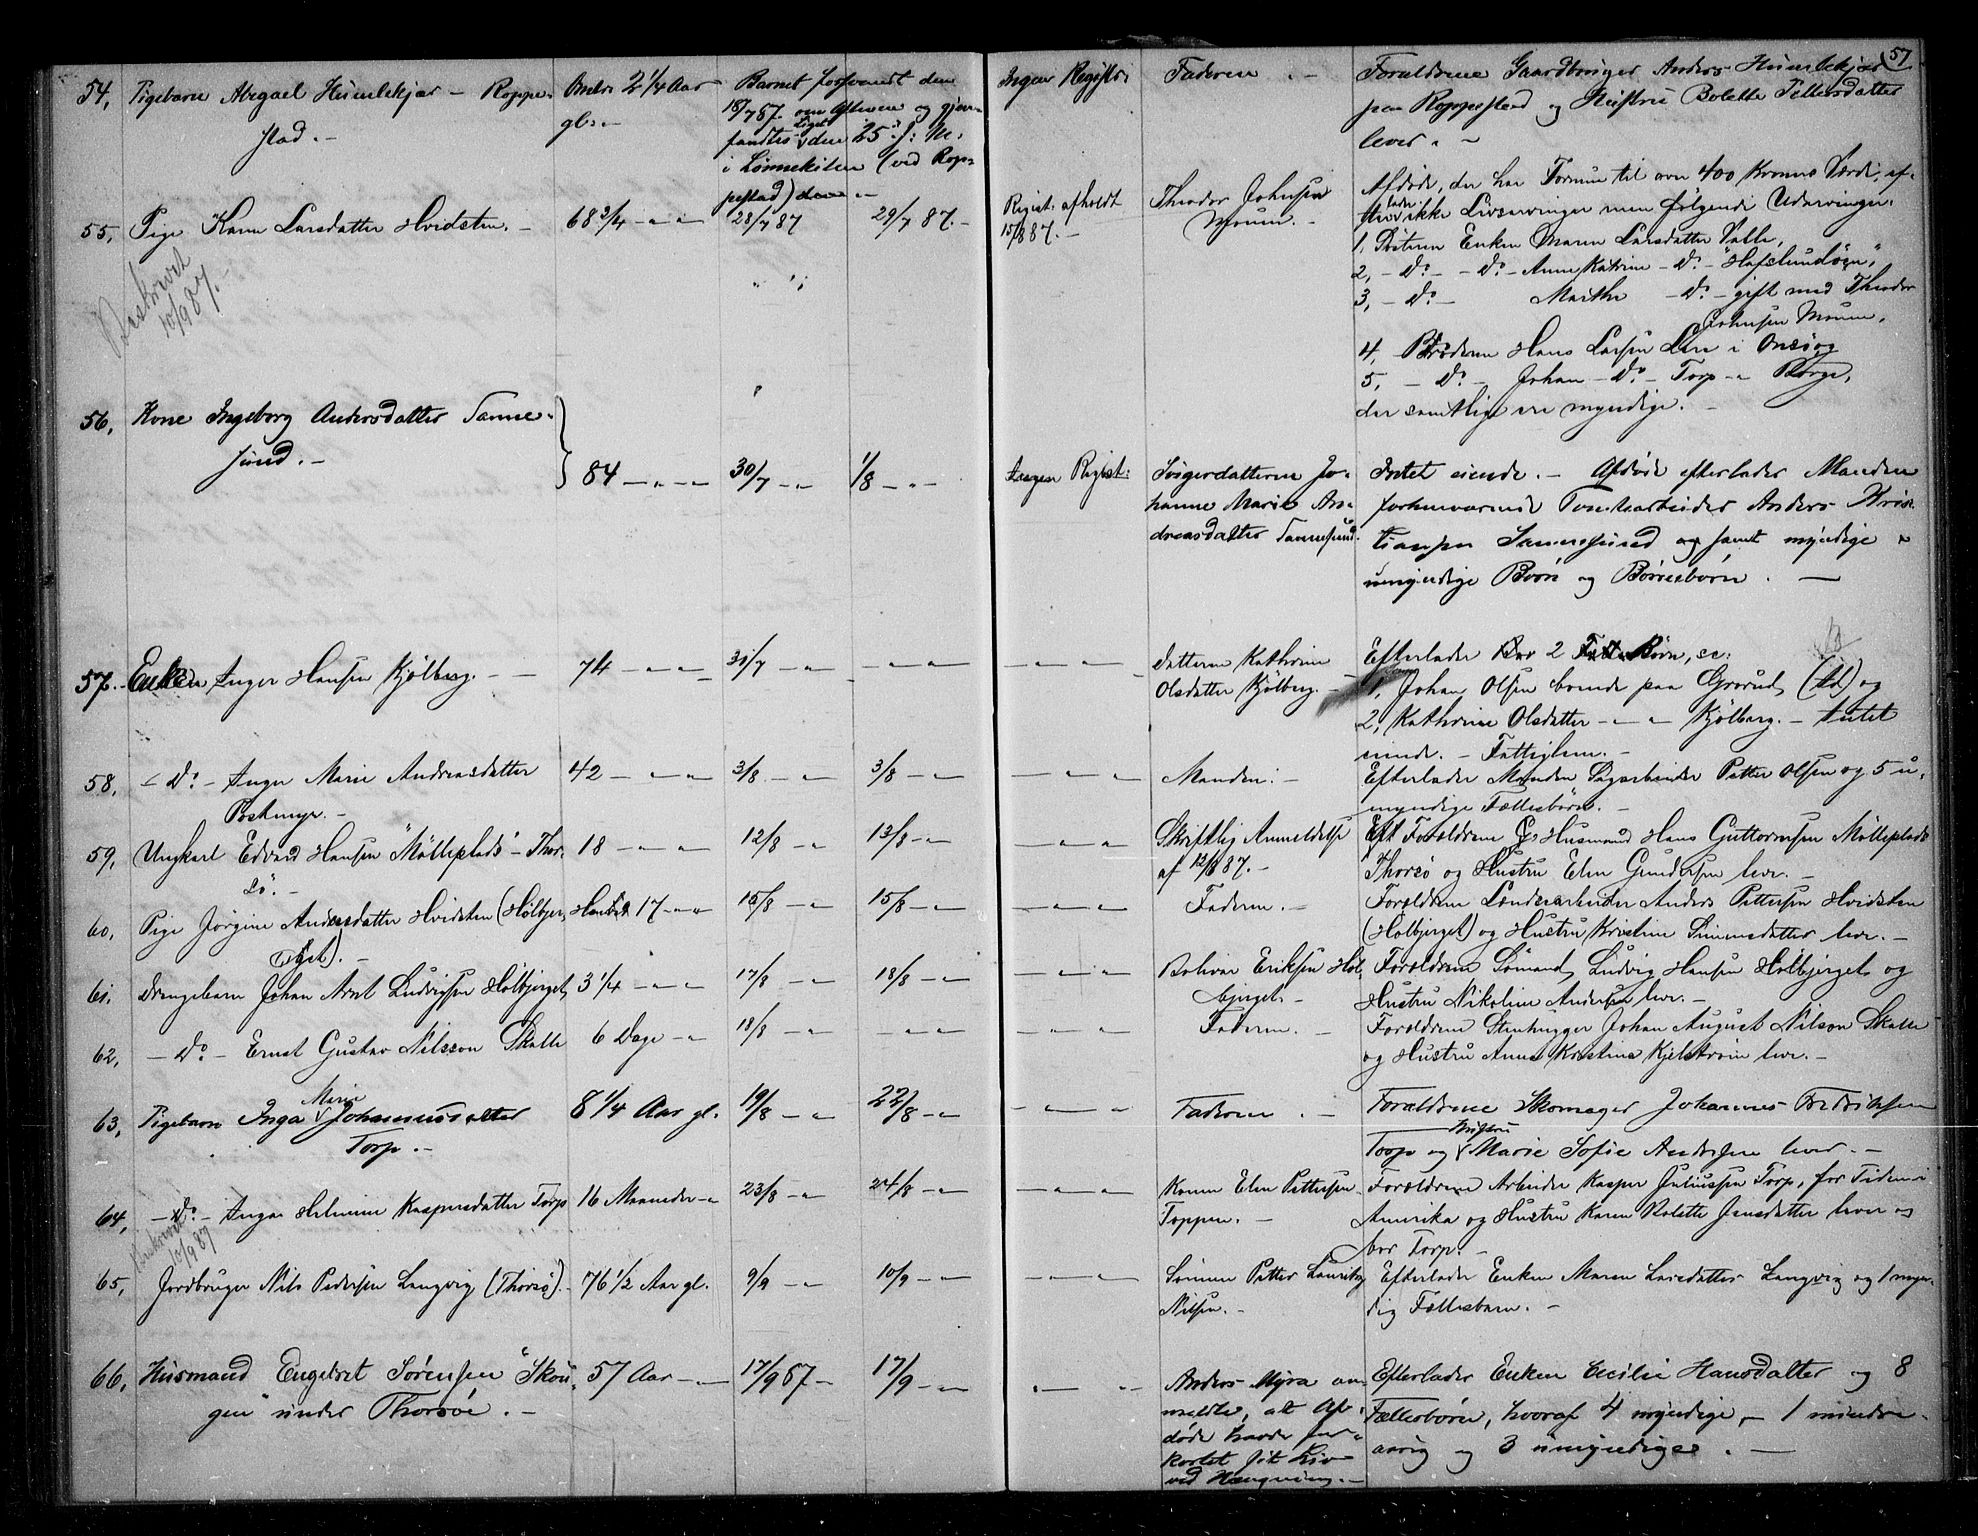 57
54, Pigebarn Abegael Humlekjær – Roppe-
stad. –
Omtr. 2 1/4 Aar
gl. –
Barnet forsvandt den
18/7 87. om Aftenen og gjen-
fandtes Liget den 25 s: M.
i Lönnekilen (ved Rop-
pestad) den –
Ingen Registr:
Faderen. –
Forældrene Gaardbruger Anders Humlekjær
paa Roppestad og Hustru Bolette Pettersdatter
lever. –
55, Pige Karen Larsdatter Hvidsten. –
Beskrevet
10/9 87. –
68 3/4 – " –
28/7 87
29/7 87. –
Regist. afholdt
15/8 87. –
Theodor Johnsen
Moum. –
Afdöde, der har Formue til over 400 Kroners Værdi, ef-
terlader ikke Livsarvinger men følgende Udarvinger:
1, Söstren Enken Maren Larsdatter Valle,
2, – Do – – Do – Anne Katrine – Do – "Hafslundsöen,"
3, – Do – Marthe – Do – gift med Theodor
Johnsen Moum,
4, Broderen Hans Larsen Lere i Onsö og
5, – Do – Johan – Do – Torp – Borge,
der samtlige ere myndige. –
56, Kone Ingeborg Andersdatter Sanne-
sund. –
84 – " –
30/7 – "
1/8 – " –
Ingen Regist:
Svigerdatteren Jo-
hanne Marie An-
dreasdatter Sannesund.
Intet eiende. – Afdöde efterlader Manden
forhenværende Tomtearbeider Anders Kris-
tiansen Sannesund og samt myndige "
umyndige Börn og Börnebörn. –
57. – Enken Inger Hansen Kjölberg. –
74 – " –
31/7 – "
– " –
– " –
Datteren Kathrine
Olsdatter Kjölberg. –
Efterlader 2 Börn, sc:
1, Johan Olsen boende paa Grorud, og
2, Kathrine Olsdatter – " – Kjölberg. – Intet
eiende. – Fattiglem. –
58, – Do – Inger Marie Andreasdatter
Postmyr. –
42 – " –
3/8 – "
3/8 – "
– " –
Manden. –
Efterlader Manden Sagarbeider Petter Olsen og 5 u-
myndige Fællesbörn. –
59, Ungkarl Edvard Hansen "Mölleplads" – Thor-
sö. –
18 – " –
12/8 – "
13/8 – "
– " –
Skriftlig Anmeldelse
af 12/8 87. –
Forældrene Husmand Hans Guttormsen Mölleplads
Thorsö og Hustru Elen Gundersen lever. –
60, Pige Jörgine Andersdatter Hvidsten (Hölbjer-
get). –
17 – "
15/8 – "
15/8 – "
– " –
Faderen. –
Forældrene Lændsearbeider Anders Pettersen Hvidsten
(Hölbjerget) og Hustru Kristine Simensdatter lever. –
61. Drengebarn Johan Arnt Ludvigsen Hölbjerget,
3 1/4 – " –
17/8 – "
18/8 – "
– " –
Bolivar Eriksen Höl-
bjerget. –
Forældrene Sömand, Ludvig Hansen Hölbjerget og
Hustru Nikoline Andersen lever. –
62, – Do – Ernst Gustav Nilsson Skalle
6 Dage – "
18/8 – "
– " –
– " –
Faderen. –
Forældrene Stenhugger Johan August Nilson Skalle
og Hustru Anna Kristina Kjelström lever. –
63, Pigebarn Inga Marie Johannesdatter
Torp. –
8 1/4 Aar gl.
19/8 – "
22/8 – "
– " –
Faderen. –
Forældrene Skomager Johannes Fredriksen
Torp og Hustru Marie Sofie Andersen lever. –
64, – Do – Inga Helmine Kaspersdatter Torp
16 Maaneder – "
23/8 – "
24/8 – "
– " –
Konen Elen Pettersen
Toppen. –
Forældrene Arbeider Kasper Juliussen Torp, for Tiden i
Amerika og Hustru Karen Bolette Jensdatter lever og
bor Torp. –
Beskrevet
10/9 87
65, Jordbruger Nils Pedersen Langvig (Thorsö). –
76 1/2 Aar gl.
9/9 – "
10/9 – "
– " –
Sönnen Petter Lauritz
Nilsen. –
Efterlader Enken Maren Larsdatter Langvig og 1 myn-
dig Fællesbarn. –
66, Husmand Engebret Sörensen "Skou-
gen" under Thorsöe. –
57 Aar – "
17/9 87 –
17/9 – "
– " –
Anders Myra an-
meldte, at Af-
döde havde for-
kortet sit Liv
ved Hængning. –
Efterlader Enken Cecilie Hansdatter og 8
Fællesbörn, hvoraf 4 myndige, – 1 mindre-
aarig og 3 umyndige. –